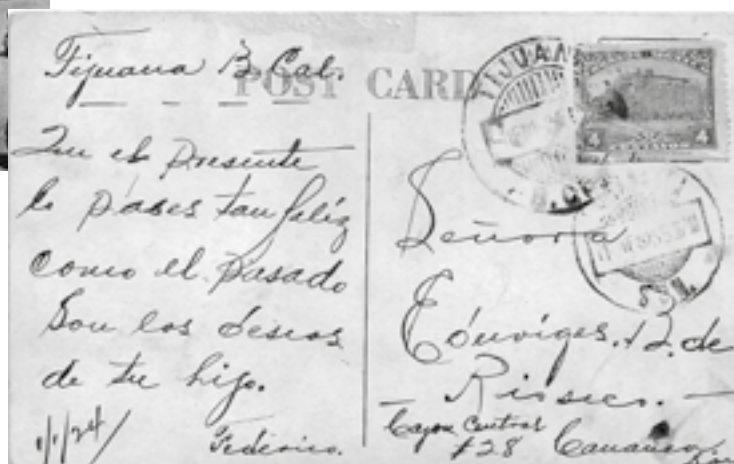 Tijuana B. Cal.
POST CARD
Que el presente
lo pases tan feliz
como el pasado
Son los deseos
de tu hijo.
1/1/24
Federico.
TIJUANA
4 4
Señora
de
Rioseco.
Cananea
#28
SON.